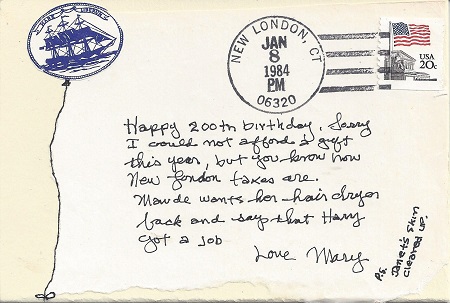 BARK LONDON
NEW LONDON, CT
JAN
8
1984
PM
06320
USA
20c
Happy 200th birthday, Sorry
I could not afford a gift
this year, but you know how
New London taxes are.
Maude wants her hair dryer
back and say that Hary
got a job
Love Mary
P.S.
Janet's skin
cleared up.